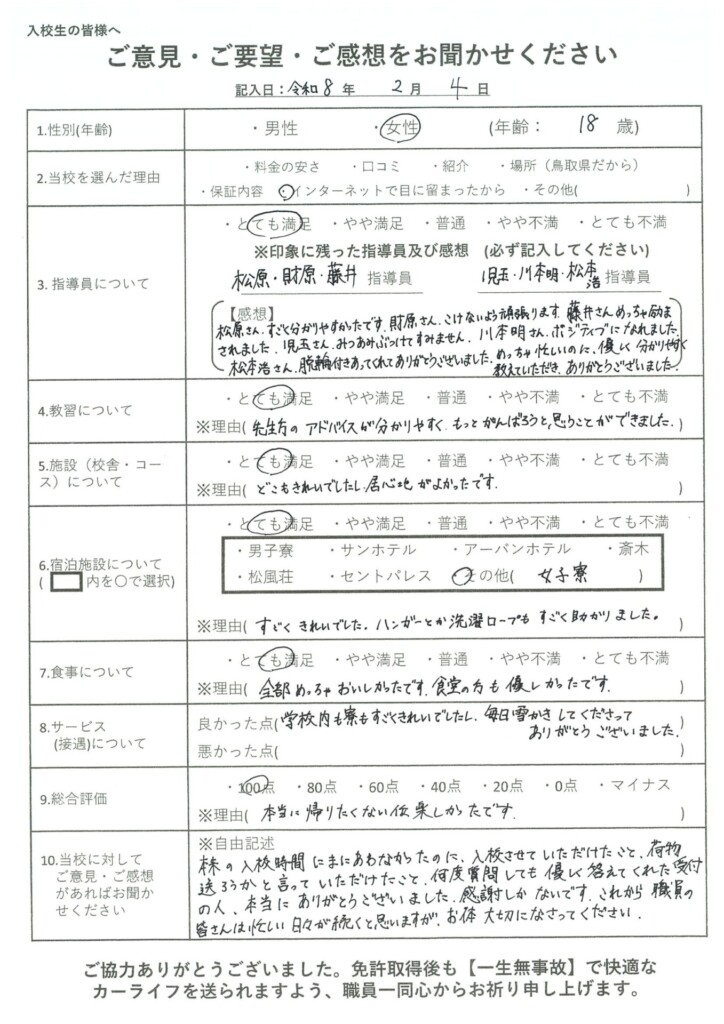 入校生の皆様へ
ご意見・ご要望・ご感想をお聞かせください
記入日：令和8年 2月 4日
1.性別(年齢) ・男性 ・女性 (年齢： 18 歳)
2.当校を選んだ理由 ・料金の安さ ・口コミ ・紹介 ・場所（鳥取県だから）
・保証内容 ・インターネットで目に留まったから ・その他( )
3. 指導員について ・とても満足 ・やや満足 ・普通 ・やや不満 ・とても不満
※印象に残った指導員及び感想 (必ず記入してください)
松原・財原・藤井 指導員 児玉・川本明・松本浩 指導員
【感想】
松原さん、すごく分かりやすかったです。財原さん、こけないよう頑張ります。藤井さんめっちゃ励ま
されました。児玉さん、みつあみぶつけてすみません。川本明さん、ポジティブになれました。
松本浩さん、脱輪付きあってくれてありがとうございました。めっちゃ忙しいのに、優しく分かりやすく
教えていただき、ありがとうございました。
4.教習について ・とても満足 ・やや満足 ・普通 ・やや不満 ・とても不満
※理由( 先生方のアドバイスが分かりやすく、もっとがんばろうと思うことができました。)
5.施設（校舎・コース）について ・とても満足 ・やや満足 ・普通 ・やや不満 ・とても不満
※理由( どこもきれいでしたし、居心地がよかったです。 )
6.宿泊施設について
( 内を〇で選択) ・とても満足 ・やや満足 ・普通 ・やや不満 ・とても不満
・男子寮 ・サンホテル ・アーバンホテル ・斎木
・松風荘 ・セントパレス ・その他( 女子寮 )
※理由( すごくきれいでした。ハンガーとか洗濯ロープもすごく助かりました。 )
7.食事について ・とても満足 ・やや満足 ・普通 ・やや不満 ・とても不満
※理由( 全部めっちゃおいしかったです。食堂の方も優しかったです。 )
8.サービス
(接遇)について 良かった点( 学校内も寮もすごくきれいでしたし、毎日雪かきしてくださって
ありがとうございました。 )
悪かった点( )
9.総合評価 ・100点 ・80点 ・60点 ・40点 ・20点 ・0点 ・マイナス
※理由( 本当に帰りたくない位楽しかったです。 )
10.当校に対して
ご意見・ご感想
があればお聞か
せください ※自由記述
の入校時間にまにあわなかったのに、入校させていただけたこと、荷物
送ろうかと言っていただけたこと、何度質問しても優しく答えてくれた受付
の人、本当にありがとうございました。感謝しかないです。これから職員の
皆さんは忙しい日々が続くと思いますが、お体大切になさってください。
ご協力ありがとうございました。免許取得後も【一生無事故】で快適な
カーライフを送られますよう、職員一同心からお祈り申し上げます。